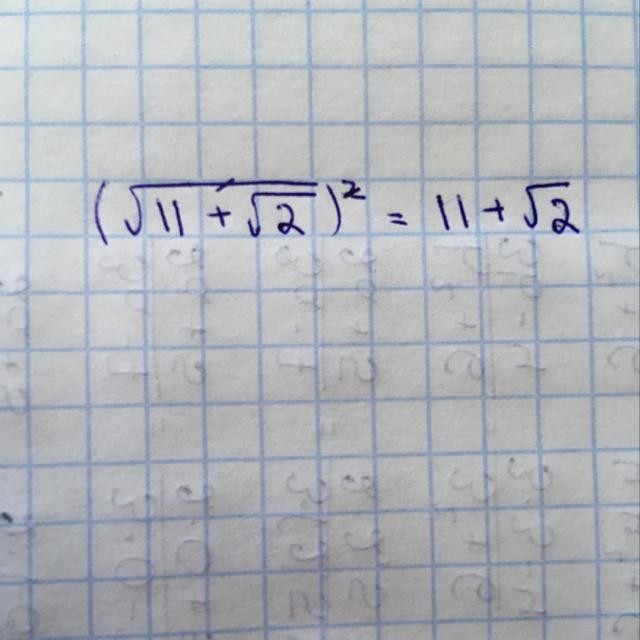 (√(11 + √2))² = 11 + √2